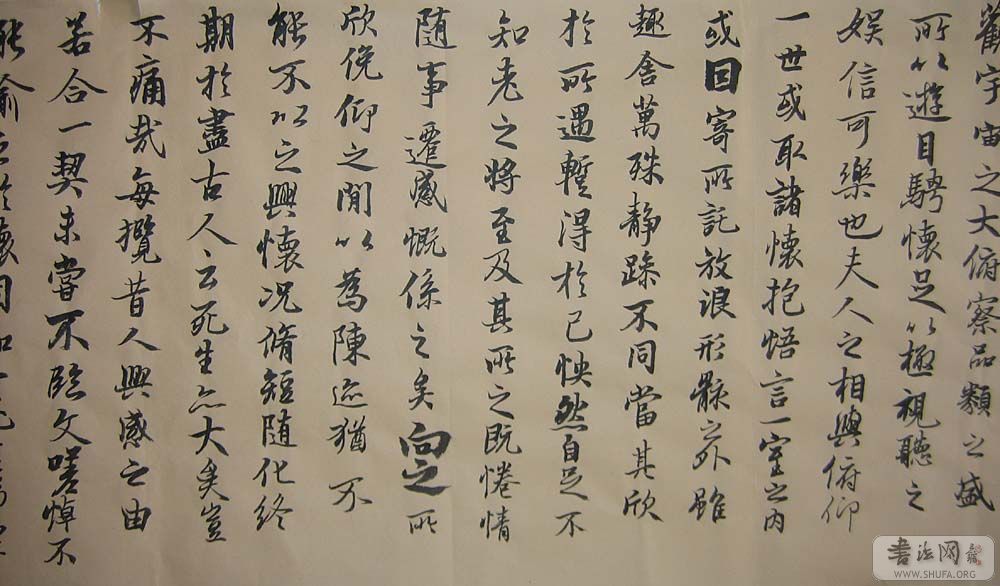 觀宇宙之大俯察品類之盛
所以遊目騁懷足以極視聽之
娛信可樂也夫人之相與俯仰
一世或取諸懷抱悟言一室之內
或因寄所託放浪形骸之外雖
趣舍萬殊靜躁不同當其欣
於所遇暫得於己怏然自足不
知老之將至及其所之既惓情
隨事遷感慨係之矣向之所
欣俛仰之閒以為陳迹猶不
能不以之興懷况脩短隨化終
期於盡古人云死生亦大矣豈
不痛哉每攬昔人興感之由
若合一契未嘗不臨文嗟悼不
能喻之於懷固知一死生為
書法网
WWW.SHUFA.ORG